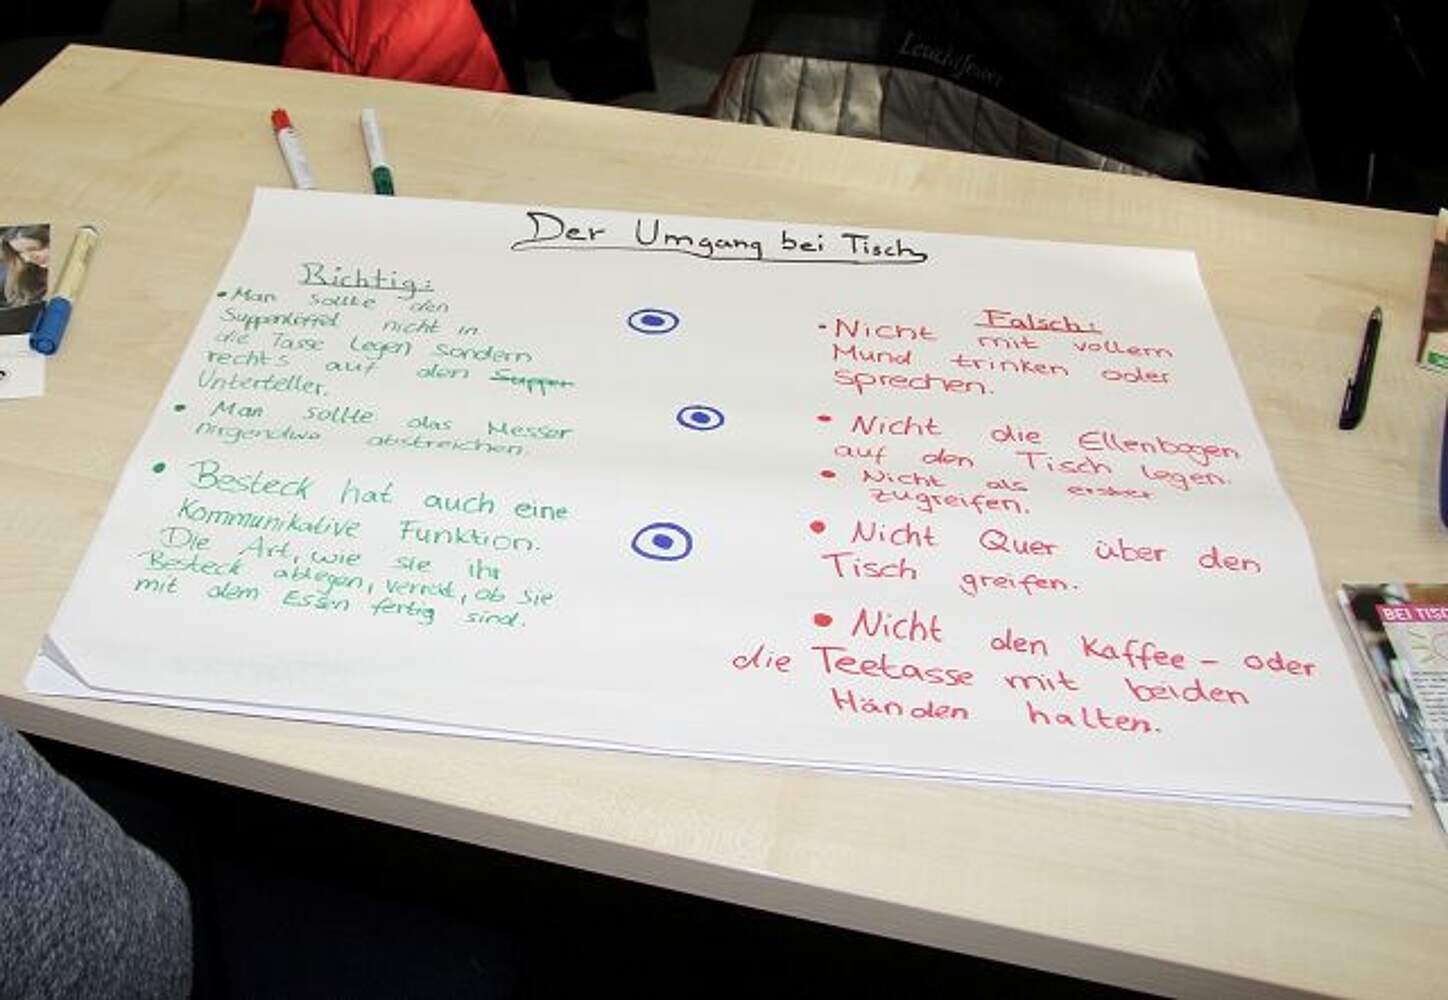 Leuchtfeuer
Der Umgang bei Tisch
Richtig:
• Man sollte den
Suppenlöffel nicht in
die Tasse legen sondern
rechts auf den Suppen
Unterteller.
• Man sollte das Messer
nirgendwo abstreichen.
• Besteck hat auch eine
Kommunikative Funktion.
Die Art, wie sie ihr
Besteck ablegen, verrät, ob sie
mit dem Essen fertig sind.
Falsch:
• Nicht mit vollem
Mund trinken oder
sprechen.
• Nicht die Ellenbogen
auf den Tisch legen.
• Nicht als erster
zugreifen.
• Nicht Quer über den
Tisch greifen.
• Nicht den Kaffee- oder
die Teetasse mit beiden
Händen halten.
BEI TIS